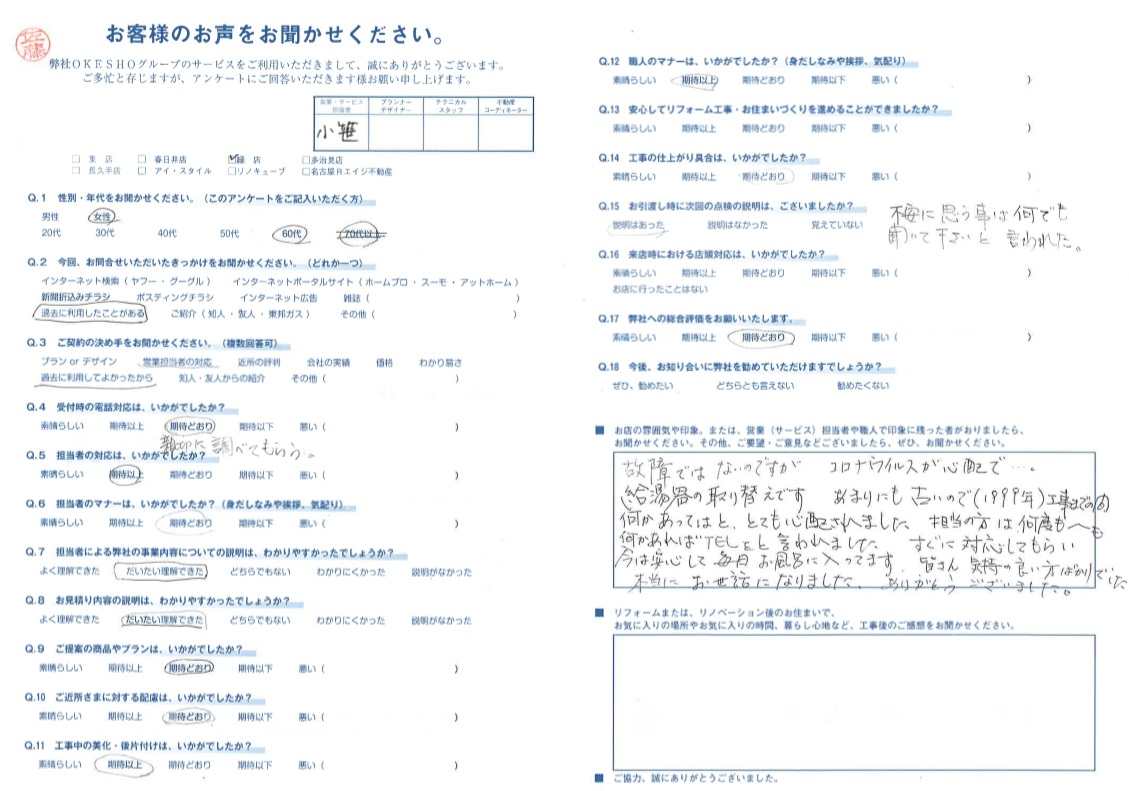 佐藤
お客様のお声をお聞かせください。
弊社OKESHOグループのサービスをご利用いただきまして、誠にありがとうございます。
ご多忙と存じますが、アンケートにご回答いただきます様お願い申し上げます。
営業・サービス担当者 プランナーデザイナー テクニカルスタッフ 不動産コーディネーター
小笹
□ 東 店 □ 春日井店 ☑緑 店 □多治見店
□ 長久手店 □ アイ・スタイル □リノキューブ □名古屋Rエイジ不動産
Q.1 性別・年代をお聞かせください。（このアンケートをご記入いただく方）
男性 女性
20代 30代 40代 50代 60代 70代以上
Q.2 今回、お問合せいただいたきっかけをお聞かせください。（どれか一つ）
インターネット検索（ ヤフー ・ グーグル ） インターネットポータルサイト（ ホームプロ ・ スーモ ・ アットホーム ）
新聞折込みチラシ ポスティングチラシ インターネット広告 雑誌（ ）
過去に利用したことがある ご紹介（ 知人 ・ 友人 ・ 東邦ガス ） その他（ ）
Q.3 ご契約の決め手をお聞かせください。（複数回答可）
プラン or デザイン 営業担当者の対応 近所の評判 会社の実績 価格 わかり易さ
過去に利用してよかったから 知人・友人からの紹介 その他（ ）
Q.4 受付時の電話対応は、いかがでしたか？
素晴らしい 期待以上 期待どおり 期待以下 悪い（ ）
親切に調べてもらう。
Q.5 担当者の対応は、いかがでしたか？
素晴らしい 期待以上 期待どおり 期待以下 悪い（ ）
Q.6 担当者のマナーは、いかがでしたか？（身だしなみや挨拶、気配り）
素晴らしい 期待以上 期待どおり 期待以下 悪い（ ）
Q.7 担当者による弊社の事業内容についての説明は、わかりやすかったでしょうか？
よく理解できた だいたい理解できた どちらでもない わかりにくかった 説明がなかった
Q.8 お見積り内容の説明は、わかりやすかったでしょうか？
よく理解できた だいたい理解できた どちらでもない わかりにくかった 説明がなかった
Q.9 ご提案の商品やプランは、いかがでしたか？
素晴らしい 期待以上 期待どおり 期待以下 悪い（ ）
Q.10 ご近所さまに対する配慮は、いかがでしたか？
素晴らしい 期待以上 期待どおり 期待以下 悪い（ ）
Q.11 工事中の美化・後片付けは、いかがでしたか？
素晴らしい 期待以上 期待どおり 期待以下 悪い（ ）
Q.12 職人のマナーは、いかがでしたか？（身だしなみや挨拶、気配り）
素晴らしい 期待以上 期待どおり 期待以下 悪い（ ）
Q.13 安心してリフォーム工事・お住まいづくりを進めることができましたか？
素晴らしい 期待以上 期待どおり 期待以下 悪い（ ）
Q.14 工事の仕上がり具合は、いかがでしたか？
素晴らしい 期待以上 期待どおり 期待以下 悪い（ ）
Q.15 お引渡し時に次回の点検の説明は、ございましたか？
説明はあった 説明はなかった 覚えていない
不安に思う事は何でも
聞いて下さいと 言われた。
Q.16 来店時における店頭対応は、いかがでしたか？
素晴らしい 期待以上 期待どおり 期待以下 悪い（ ）
お店に行ったことはない
Q.17 弊社への総合評価をお願いいたします。
素晴らしい 期待以上 期待どおり 期待以下 悪い（ ）
Q.18 今後、お知り合いに弊社を勧めていただけますでしょうか？
ぜひ、勧めたい どちらとも言えない 勧めたくない
■ お店の雰囲気や印象。または、営業（サービス）担当者や職人で印象に残った者がおりましたら、
お聞かせください。その他、ご要望・ご意見などございましたら、ぜひ、お聞かせください。
故障では ないのですが コロナウイルスが心配で…。
給湯器の取り替えです あまりにも 古いので(1999年)工事までの間
何かあってはと、とても心配されました 担当の方は何度も
何かあればTELをと言われました すぐに対応してもらい
今は安心して毎日お風呂に入ってます、皆さん気持の良い方ばかりでした
本当に お世話になりました、ありがとうございました。
■ リフォームまたは、リノベーション後のお住まいで、
お気に入りの場所やお気に入りの時間、暮らし心地など、工事後のご感想をお聞かせください。
■ ご協力、誠にありがとうございました。